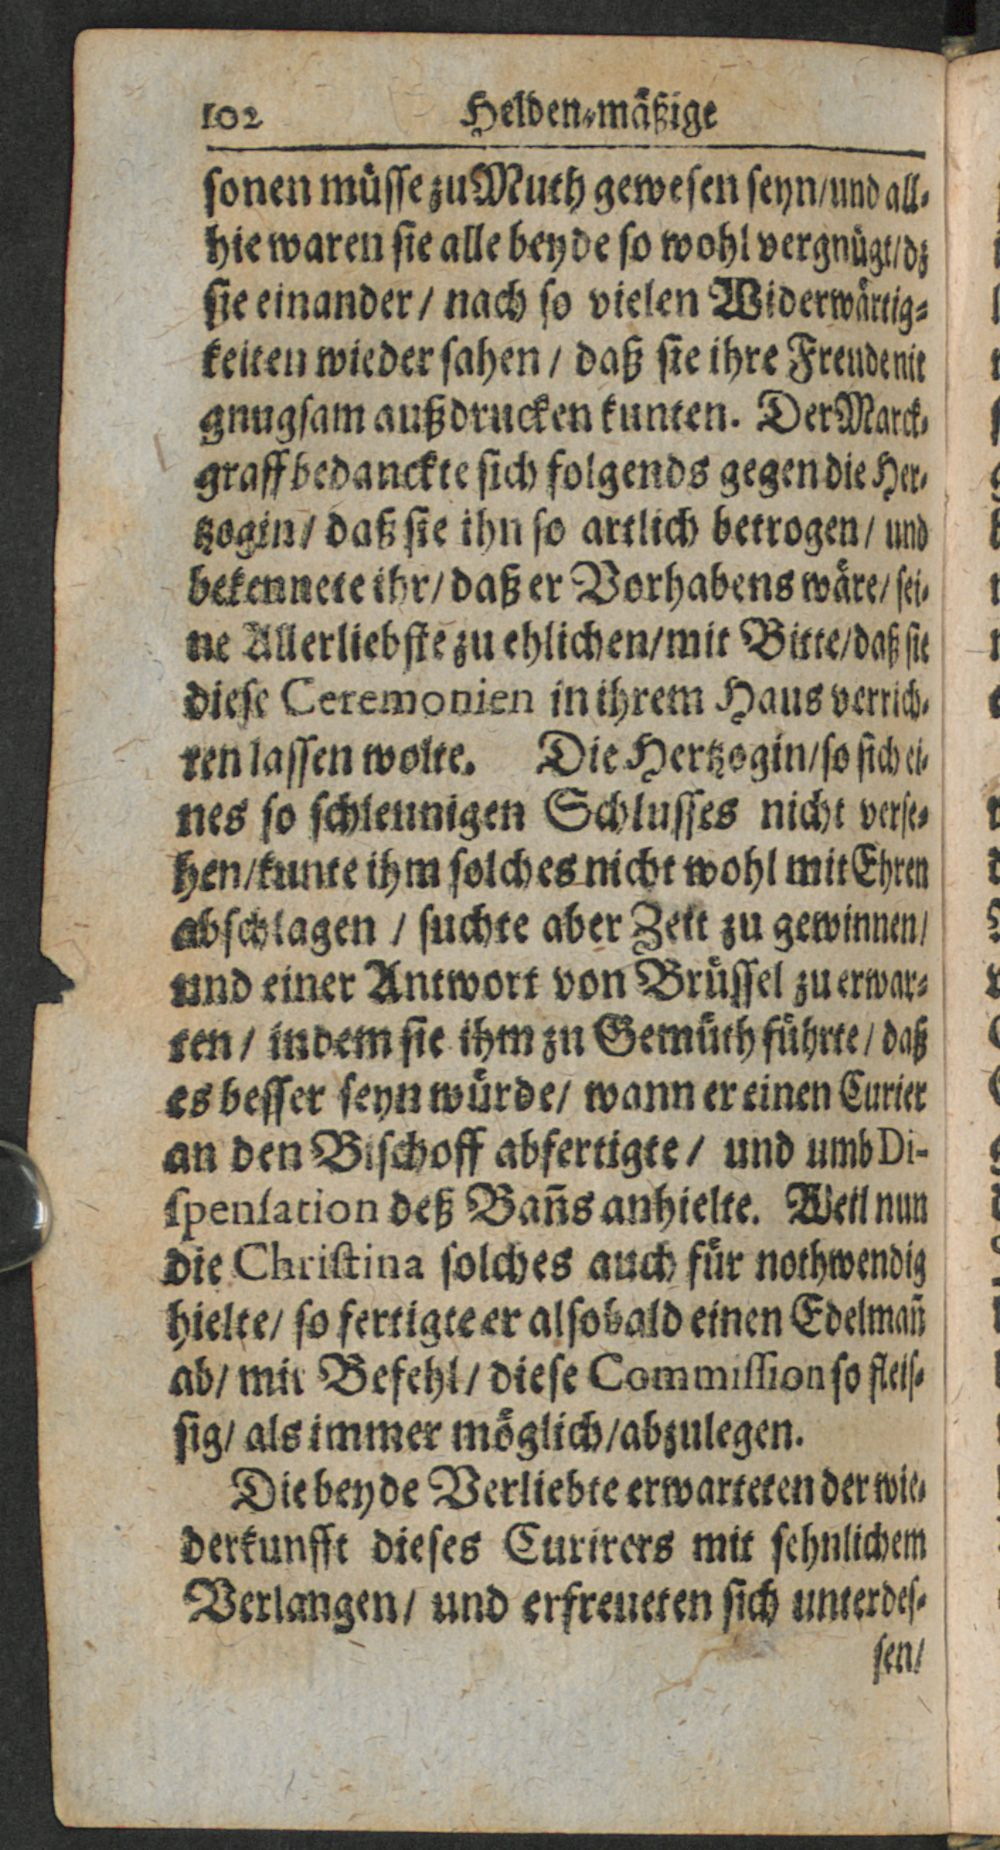 102 Helden-mäßige
sonen müsse zu Muth gewesen seyn/und all-
hie waren sie alle beyde so wohl vergnügt/dz
sie einander / nach so vielen Widerwärtig-
keiten wieder sahen / daß sie ihre Freude nit
gnugsam außdrucken kunten. Der Marck-
graff bedanckte sich folgends gegen die Her-
tzogin / daß sie ihn so artlich betrogen / und
bekennete ihr/ daß er Vorhabens wäre/ sei-
ne Allerliebste zu ehlichen/mit Bitte/daß sie
diese Ceremonien in ihrem Haus verrich-
ten lassen wolte. Die Hertzogin/so sich ei-
nes so schleunigen Schlusses nicht verse-
hen/kunte ihm solches nicht wohl mit Ehren
abschlagen / suchte aber Zeit zu gewinnen/
und einer Antwort von Brüssel zu erwar-
ten / indem sie ihm zu Gemüth führte / daß
es besser seyn würde/ wann er einen Curier
an den Bischoff abfertigte / und umb Di-
spensation deß Bañs anhielte. Weil nun
die Christina solches auch für nothwendig
hielte/ so fertigte er alsobald einen Edelmañ
ab/ mit Befehl / diese Commission so fleis-
sig/ als immer möglich/abzulegen.
Die beyde Verliebte erwarteten der wie-
derkunfft dieses Curirers mit sehnlichem
Verlangen/ und erfreueten sich unterdes-
sen/